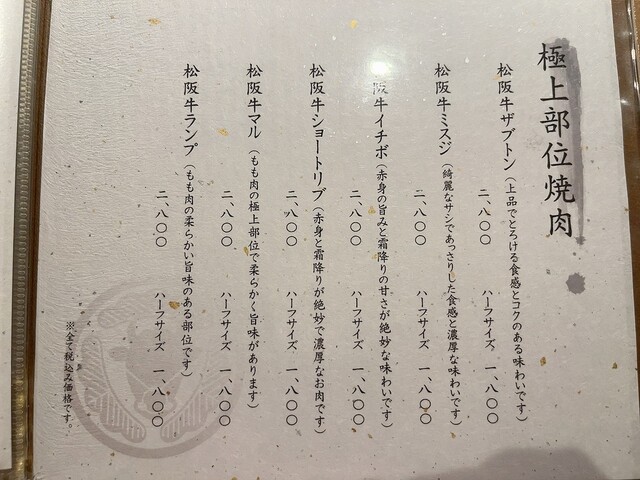 極上部位焼肉
松阪牛ザブトン(上品でとろける食感とコクのある味わいです)
二、八〇〇 ハーフサイズ 一、八〇〇
松阪牛ミスジ(綺麗なサシであっさりした食感と濃厚な味わいです)
二、八〇〇 ハーフサイズ 一、八〇〇
阪牛イチボ(赤身の旨みと霜降りの甘さが絶妙な味わいです)
二、八〇〇 ハーフサイズ 一、八〇〇
松阪牛ショートリブ(赤身と霜降りが絶妙で濃厚なお肉です)
二、八〇〇 ハーフサイズ 一、八〇〇
松阪牛マル(もも肉の極上部位で柔らかく旨味があります)
二、八〇〇 ハーフサイズ 一、八〇〇
松阪牛ランプ(もも肉の柔らかい旨味のある部位です)
二、八〇〇 ハーフサイズ 一、八〇〇
※全て税込み価格です。